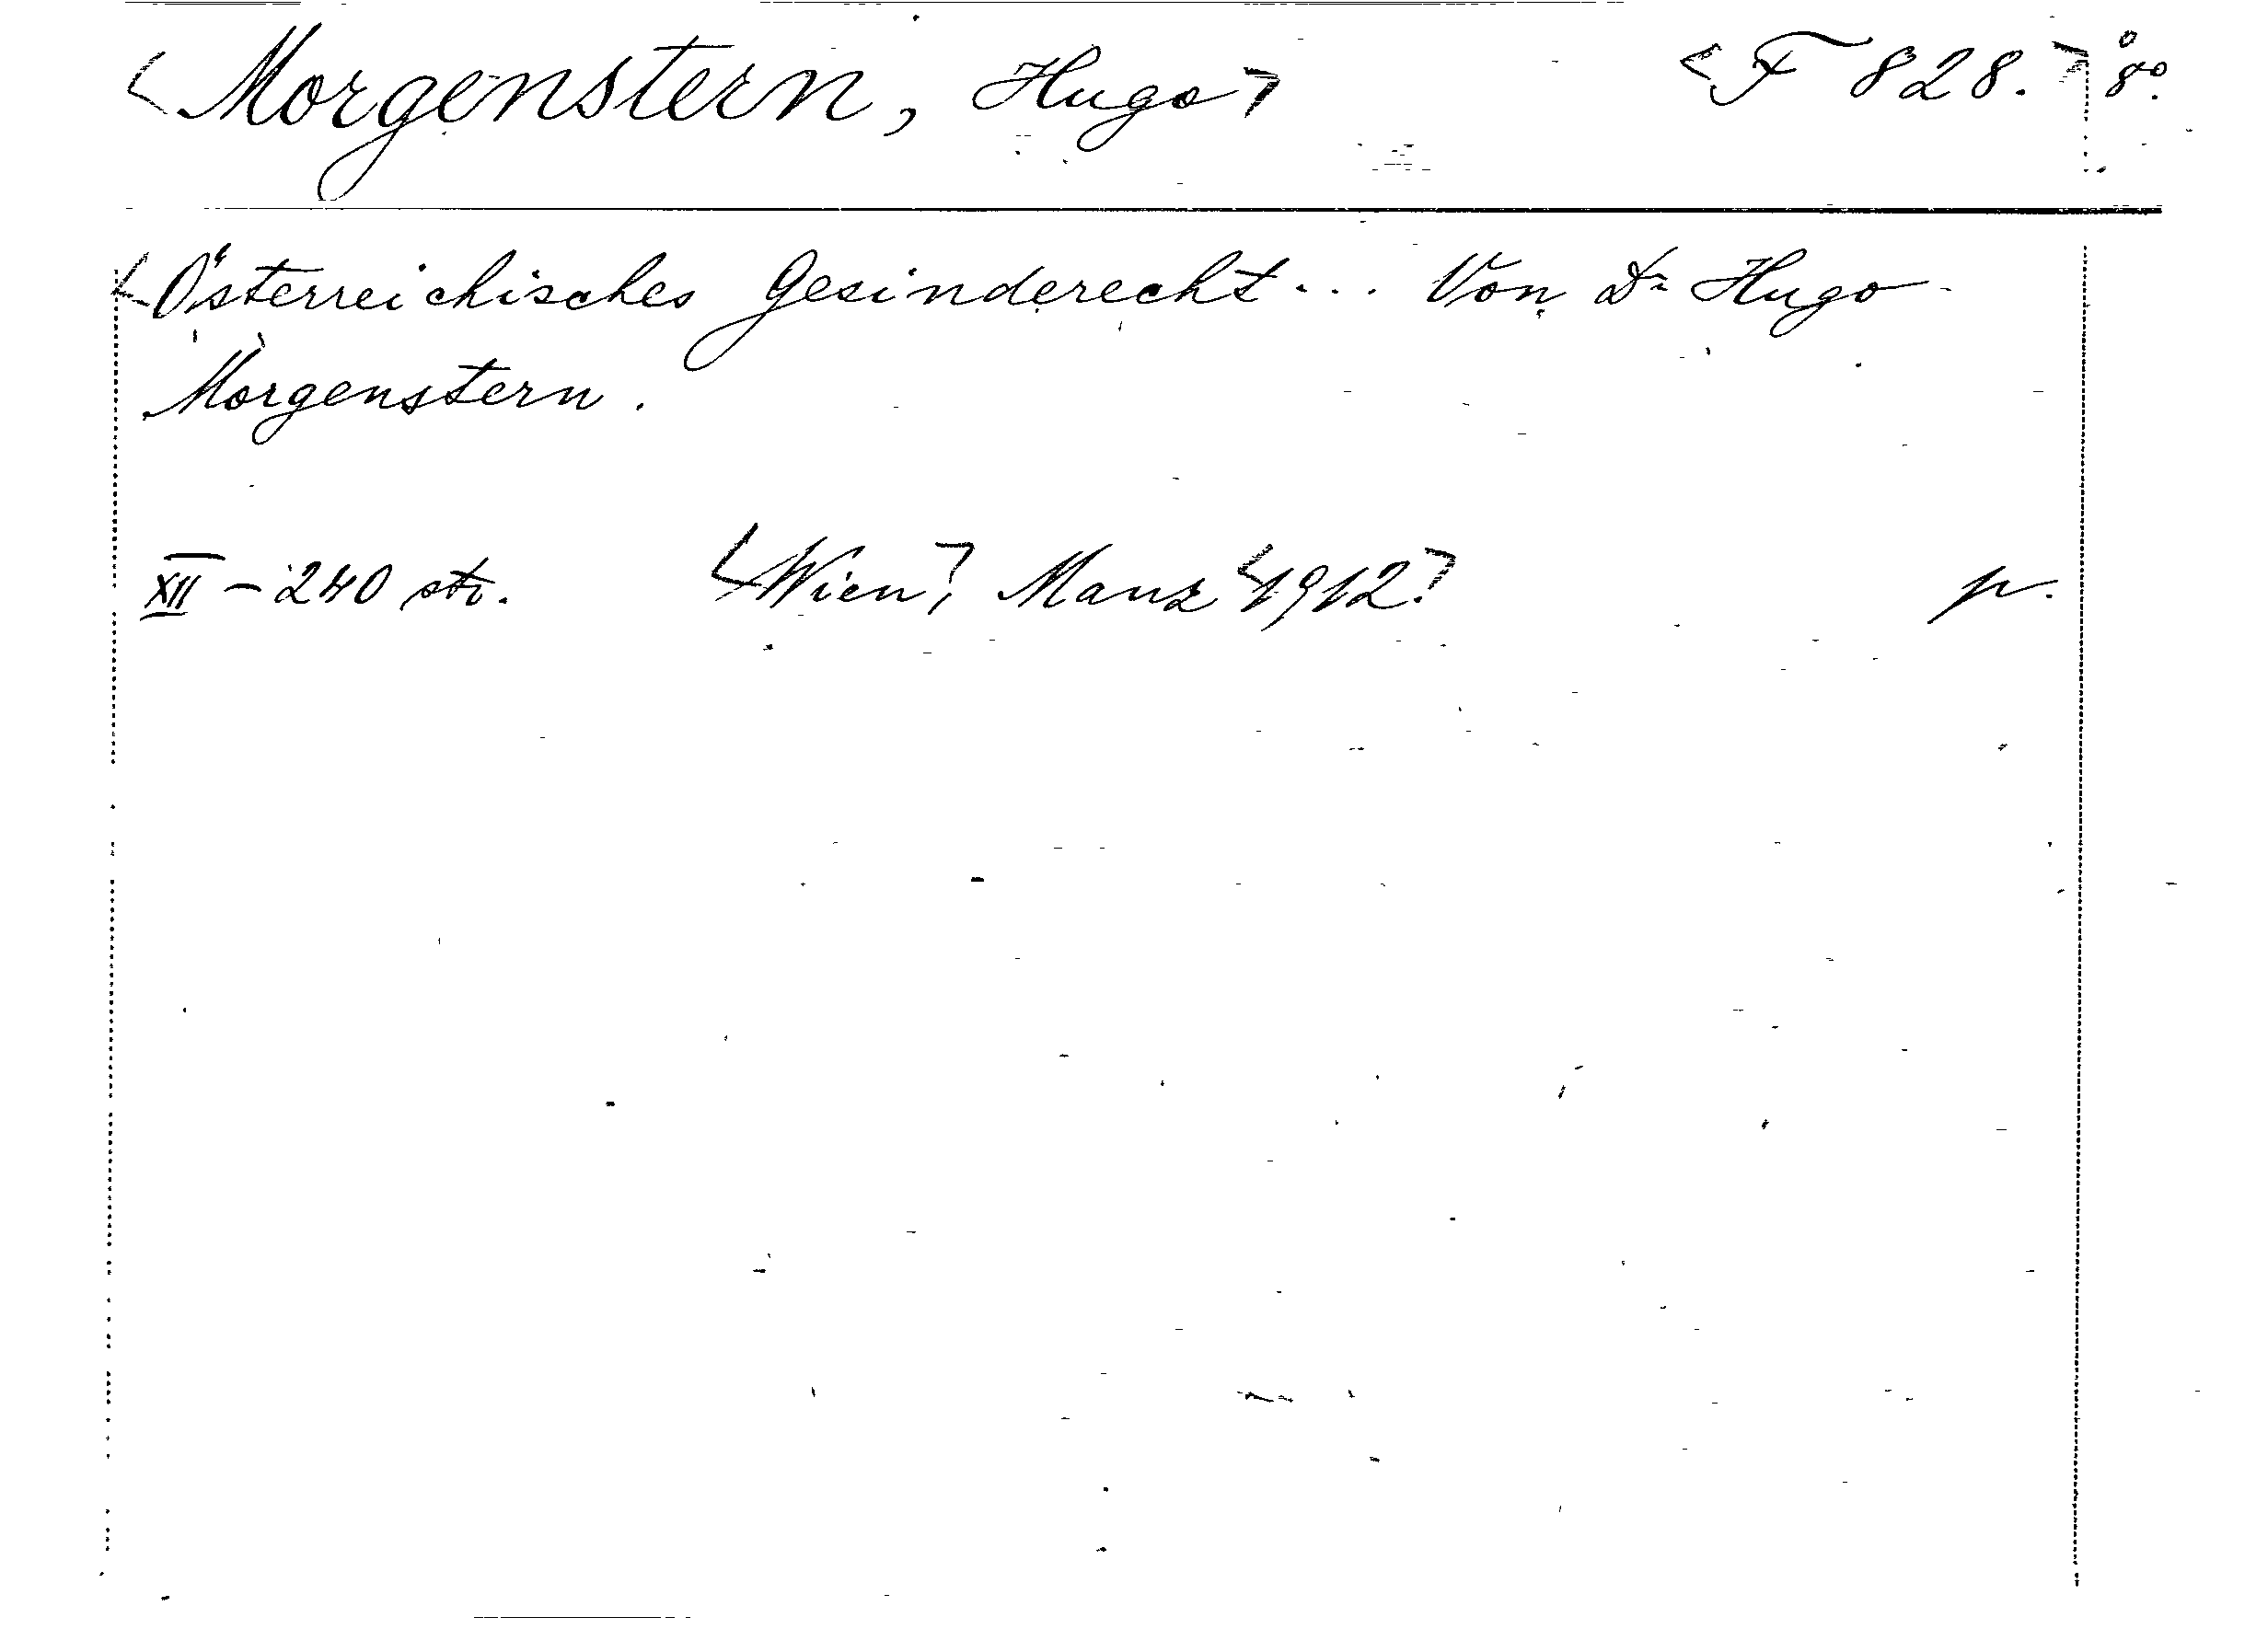 <Morgenstern, Hugo> <F 828.> 8º.
<Österreichisches Gesinderecht... Von Dr Hugo
Morgenstern.
XII - 240 str. <Wien>, Manz <1912.> p.